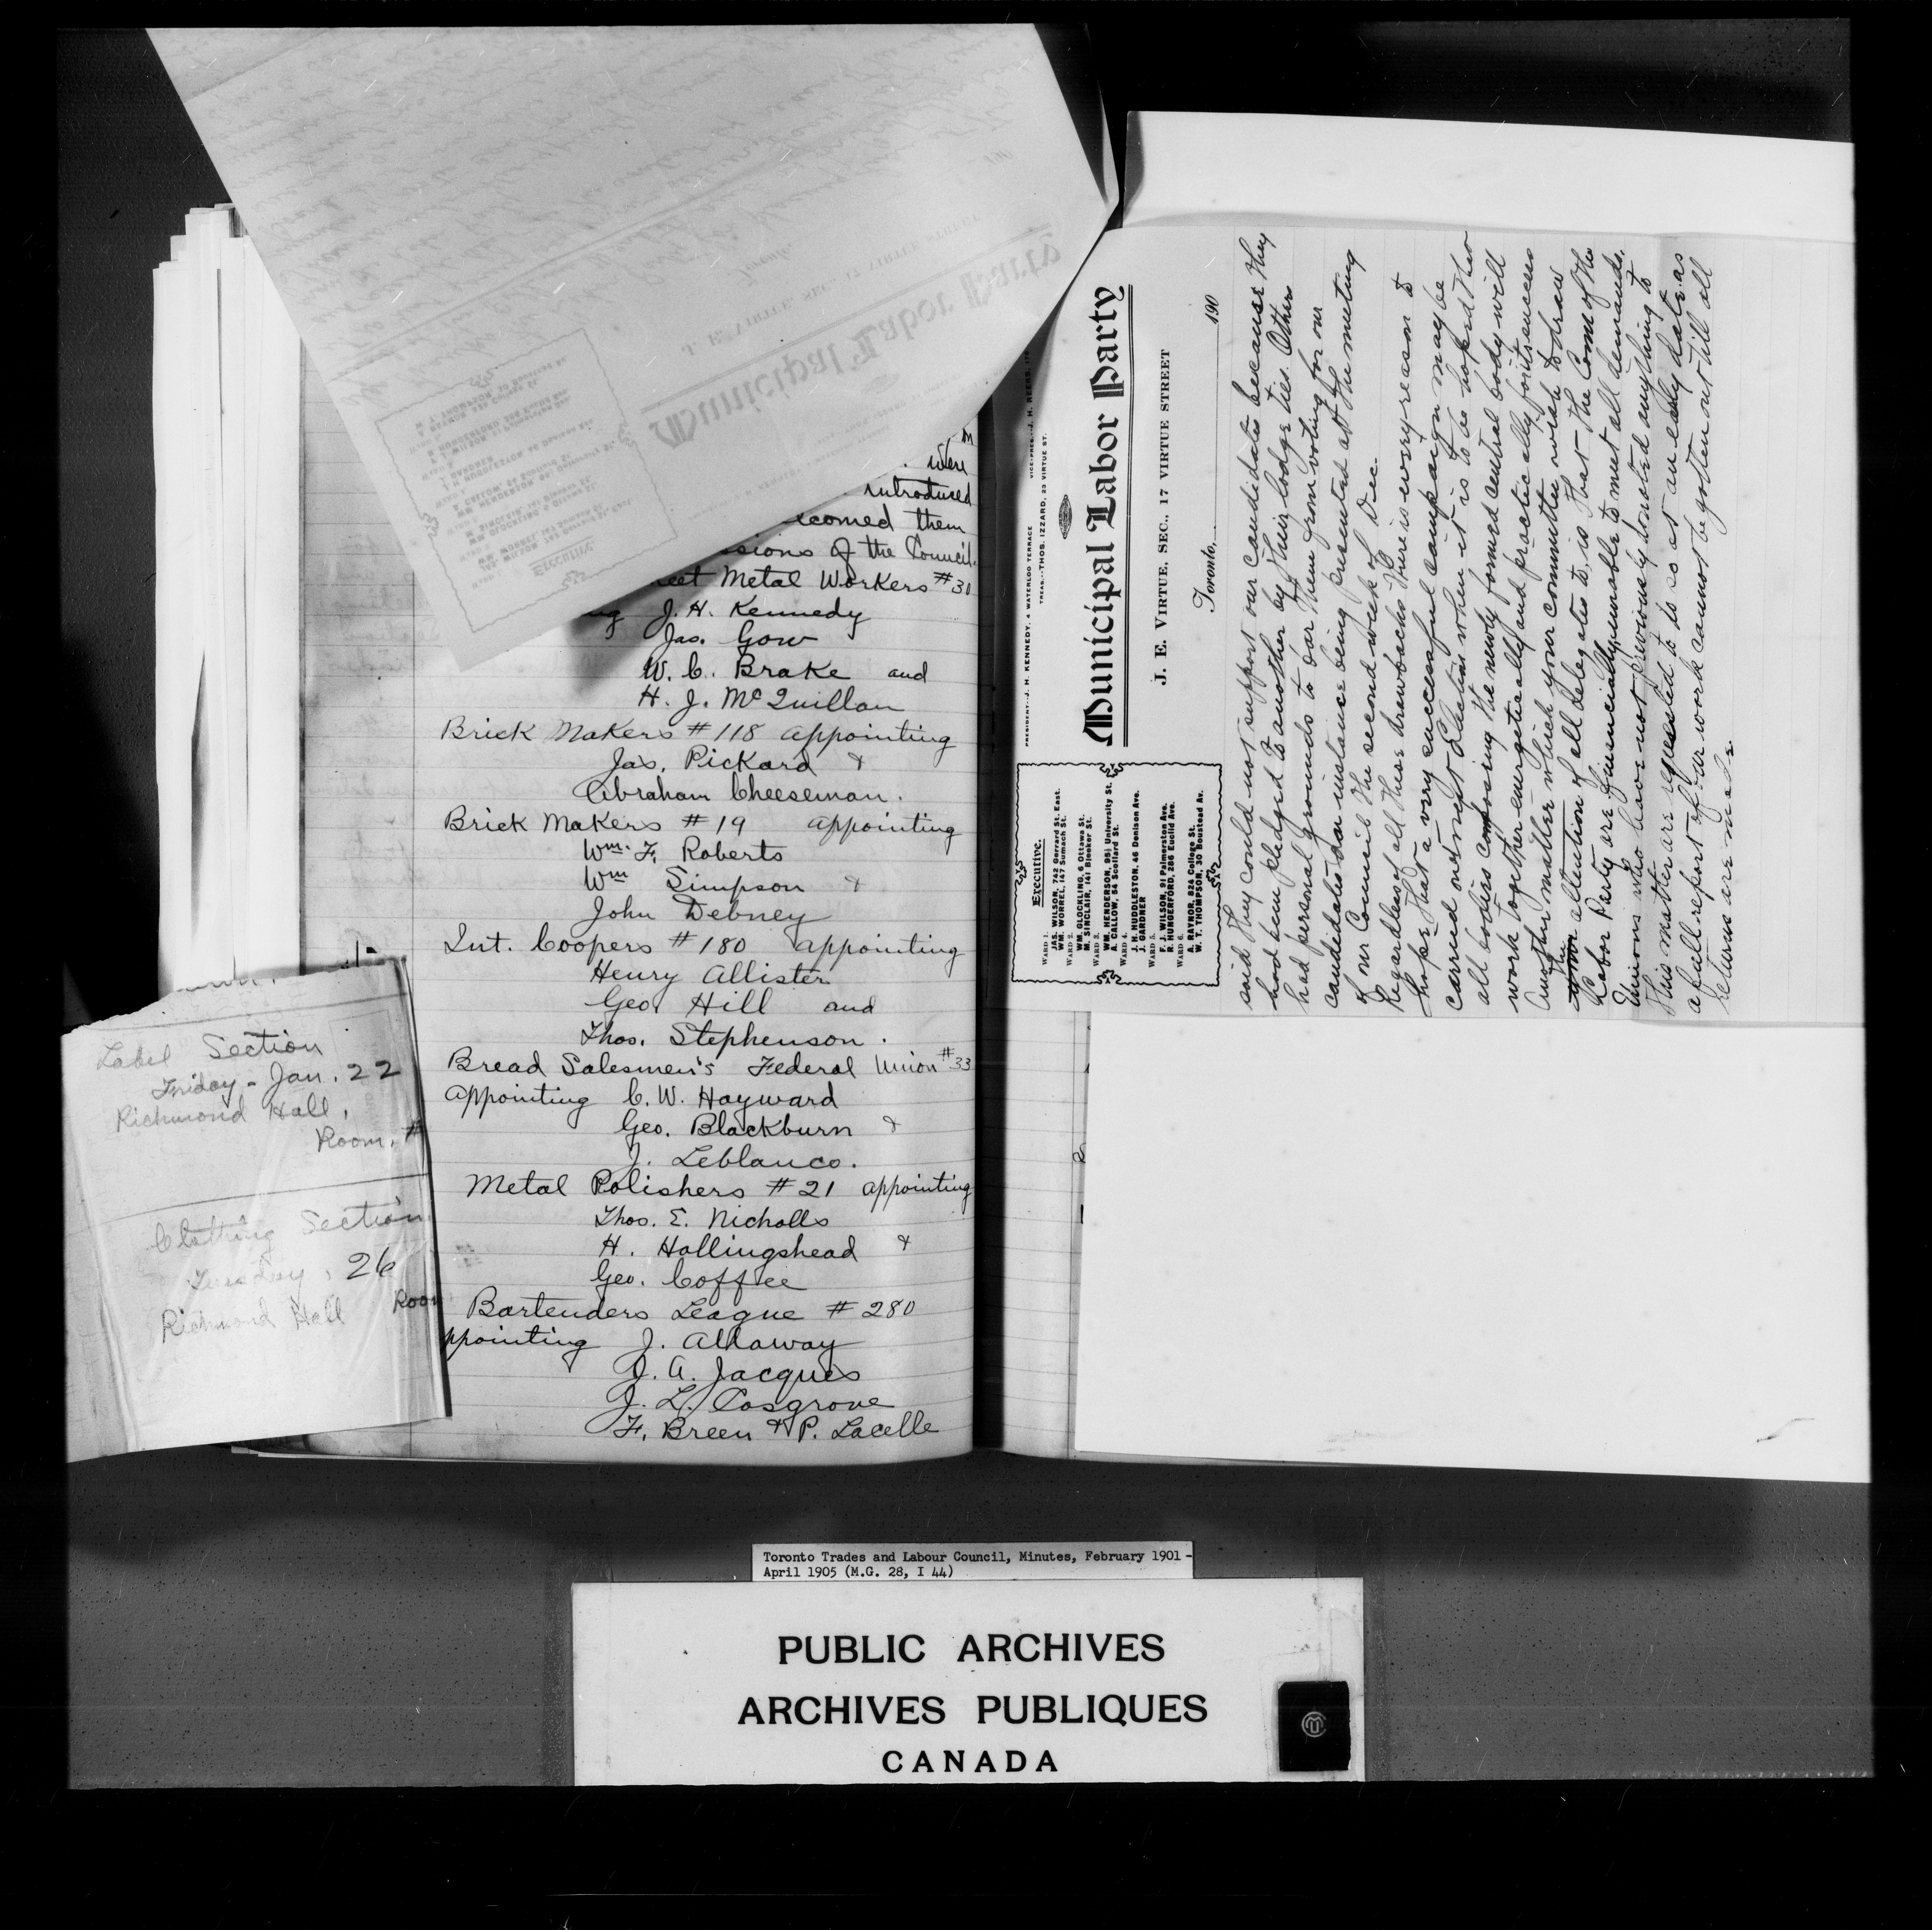 m
were
introduced
lcomed them
ssions of the Council.
eet Metal Workers #30
ng J. H. Kennedy
Jas. Gow
W. C. Brake and
H. J. McQuillan
Brick Makers #118 appointing
Jas. Pickard &
Abraham Cheeseman.
Brick Makers #19 appointing
Wm. F. Roberts
Wm Simpson &
John Debney
Int. Coopers #180 appointing
Henry Allister
Geo Hill and
Thos. Stephenson.
Bread Salesmen's Federal Union #33
appointing C. W. Hayward
Geo. Blackburn &
J. Leblanco.
Metal Polishers #21 appointing
Thos. E. Nicholls
H. Hollingshead &
Geo. Coffee
Bartenders League #280
ppointing J. Allaway
J. A. Jacques
J. L. Cosgrove
F. Breen & P. Lacelle
Label Section
Friday - Jan. 22
Richmond Hall,
Room, #
Clothing Section
Tuesday, 26
Richmond Hall Room
PRESIDENT--J. H. KENNEDY, 4 WATERLOO TERRACE VICE-PRES.--J. H. REEKS
TREAS.--THOS. IZZARD, 23 VIRTUE ST.
Municipal Labor Party
J. E. VIRTUE, SEC., 17 VIRTUE STREET
Toronto, 190
Executive.
WARD 1.
JAS. WILSON, 742 Gerrard St. East.
WM. WORREL, 147 Sumach St.
WARD 2.
WM. GLOCKLING, 6 Ottawa St.
M. SINCLAIR, 141 Bleeker St.
WARD 3.
WM. HENDERSON, 95½ University St.
A. CALLOW, 54 Scollard St.
WARD 4.
J. H. HUDDLESTON, 46 Denison Ave.
J. GARDNER
WARD 5.
F. J. WILSON, 91 Palmerston Ave.
R. HUNGERFORD, 286 Euclid Ave.
WARD 6.
A. RAYNOR, 824 College St.
W. T. THOMPSON, 30 Boustead Av.
said they could not support our candidates because they
had been pledged to another by their lodge ties. Others
had personal grounds to bar them from voting for our
candidates for instance being presented at the meeting
of our Council the second week of Dec.
Regardless of all these drawbacks there is every reason to
hope that a very successful campaign may be
carried out next Election when it is to be hoped then
all bodies composing the newly formed central body will
work together energetically and practically for its success
Another matter which your committee wish to draw
the attention of all delegates to, is that the Com of the
Labor Party are financially unable to meet all demands.
Unions who have not previously donated anything to
this matter are requested to do so at an early date as
a full report of our work cannot be gotten out till all
returns are made.
Toronto Trades and Labour Council, Minutes, February 1901 -
April 1905 (M.G. 28, I 44)
PUBLIC ARCHIVES
ARCHIVES PUBLIQUES
CANADA